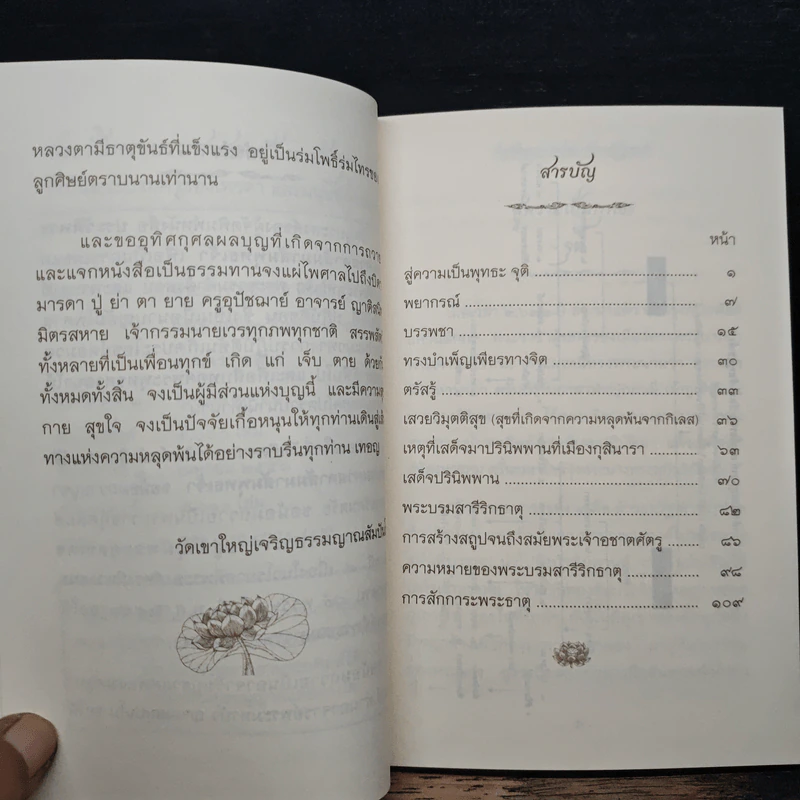 หลวงตามีธาตุขันธ์ที่แข็งแรง อยู่เป็นร่มโพธิ์ร่มไทรของ
ลูกศิษย์ตราบนานเท่านาน
และขออุทิศกุศลผลบุญที่เกิดจากการถวาย
และแจกหนังสือเป็นธรรมทานจงแผ่ไพศาลไปถึงบิดา
มารดา ปู่ ย่า ตา ยาย ครูอุปัชฌาย์ อาจารย์ ญาติสนิท
มิตรสหาย เจ้ากรรมนายเวรทุกภพทุกชาติ สรรพสัตว์
ทั้งหลายที่เป็นเพื่อนทุกข์ เกิด แก่ เจ็บ ตาย ด้วยกัน
ทั้งหมดทั้งสิ้น จงเป็นผู้มีส่วนแห่งบุญนี้ และมีความสุข
กาย สุขใจ จงเป็นปัจจัยเกื้อหนุนให้ทุกท่านเดินสู่เส้น
ทางแห่งความหลุดพ้นได้อย่างราบรื่นทุกท่าน เทอญ
วัดเขาใหญ่เจริญธรรมญาณสัมปันโน
สารบัญ
หน้า
สู่ความเป็นพุทธะ จุติ ๑
พยากรณ์ ๗
บรรพชา ๑๕
ทรงบำเพ็ญเพียรทางจิต ๓๐
ตรัสรู้ ๓๓
เสวยวิมุตติสุข (สุขที่เกิดจากความหลุดพ้นจากกิเลส) ๓๖
เหตุที่เสด็จมาปรินิพพานที่เมืองกุสินารา ๖๓
เสด็จปรินิพพาน ๗๐
พระบรมสารีริกธาตุ ๘๒
การสร้างสถูปจนถึงสมัยพระเจ้าอชาตศัตรู ๘๖
ความหมายของพระบรมสารีริกธาตุ ๙๘
การสักการะพระธาตุ ๑๐๙